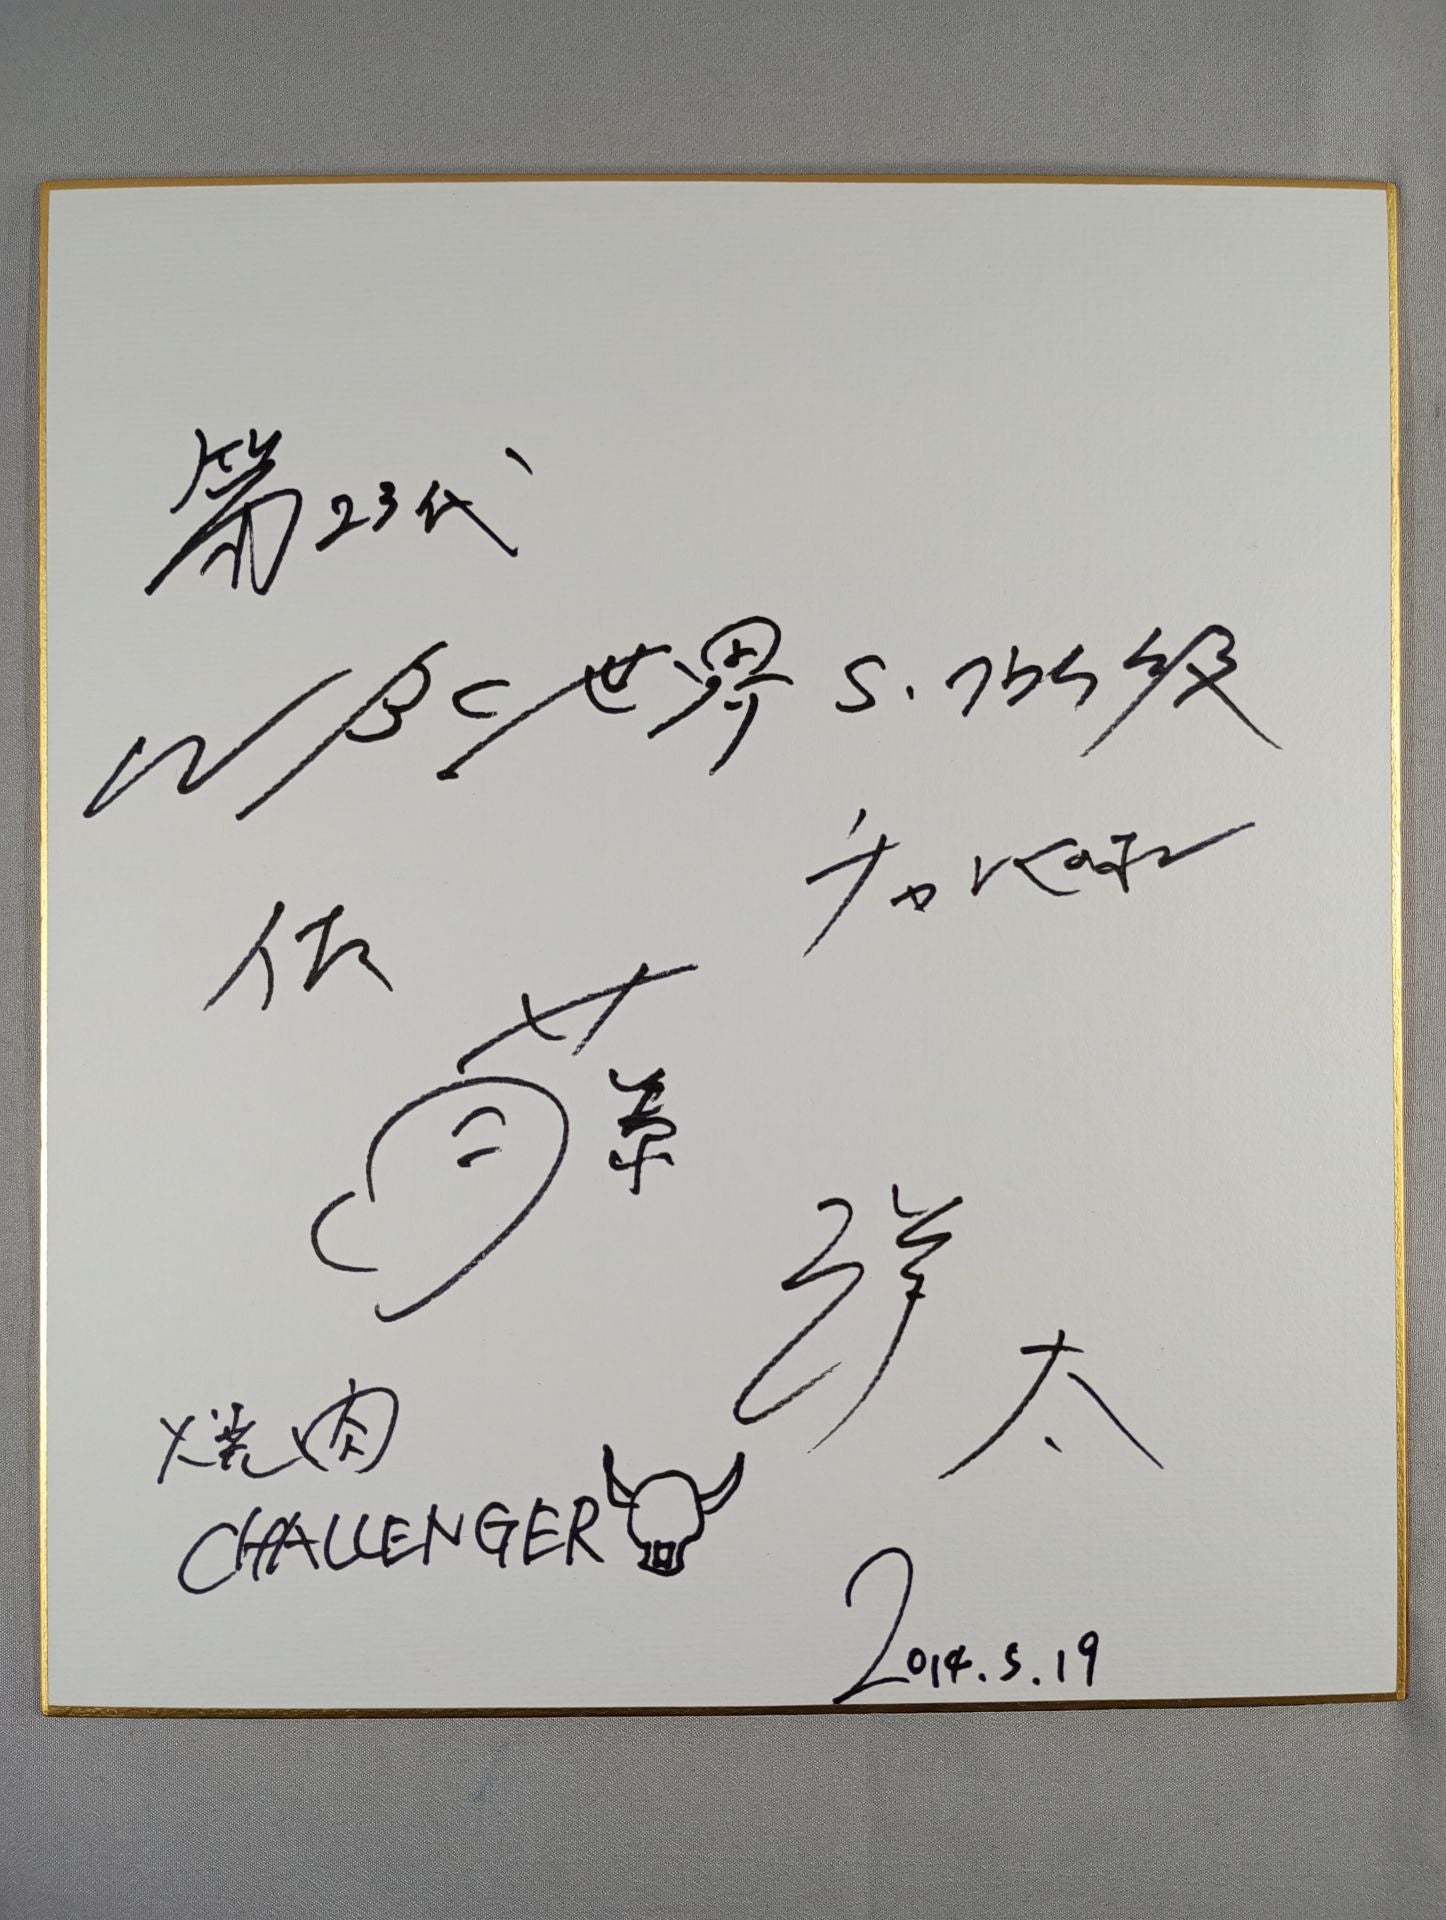 第23代
WBC世界S.フライ級
チャンピオン
佐藤洋太
焼肉
CHALLENGER
2014.5.19